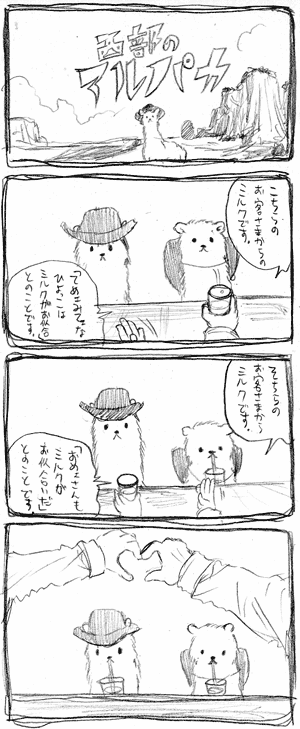 西部の
アルパカ
こちらの
お客さまからの
ミルクです。
「てめぇみてぇな
ひよっこは
ミルクがお似合
とのことです。
そちらの
お客さまから
ミルクです。
「おめぇさんも
ミルクが
お似合いだ」
とのことです。